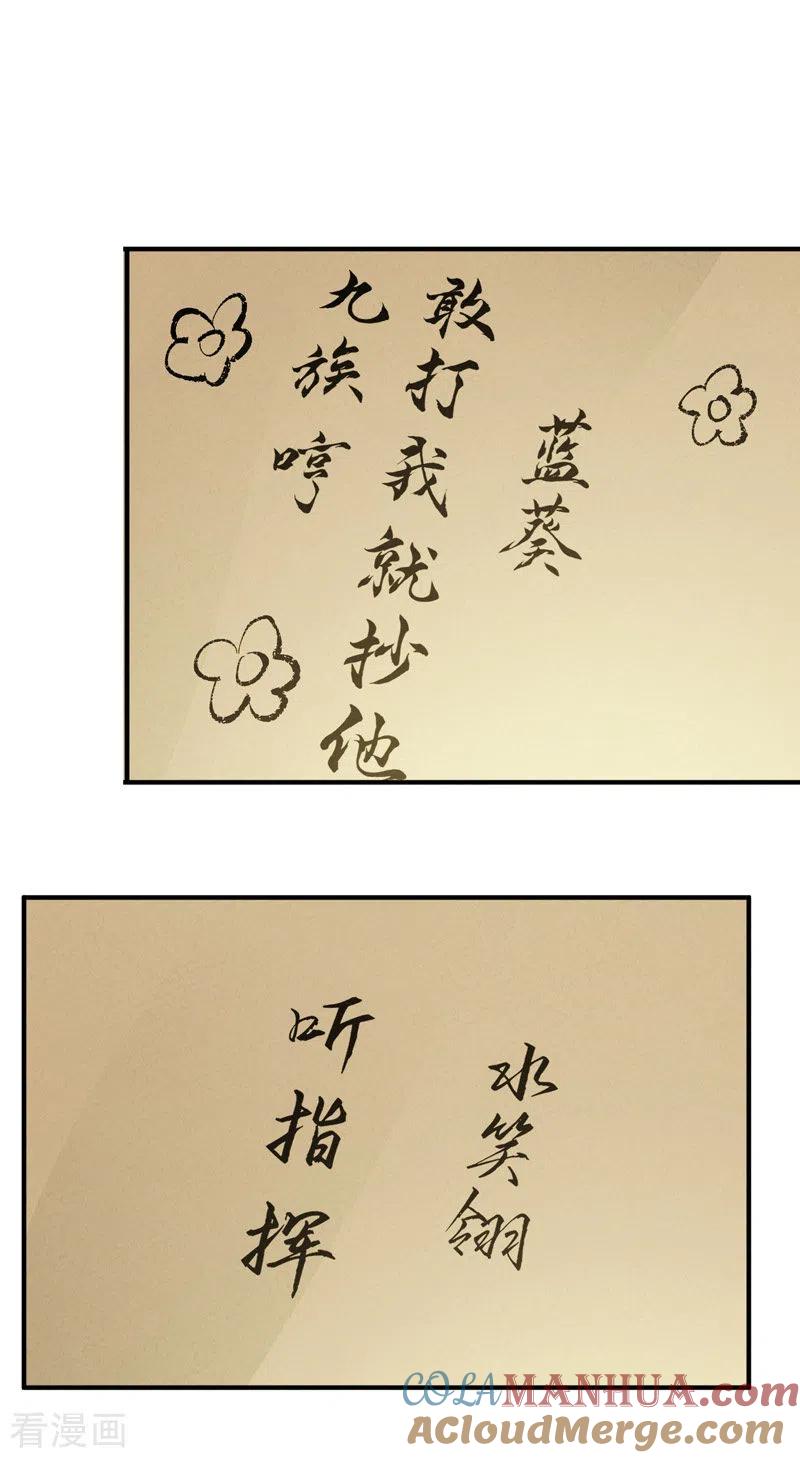 蓝葵
敢打我就抄他
九族哼
水笑翎
听指挥
COLAMANHUA.com
AcloudMerge.com
看漫画